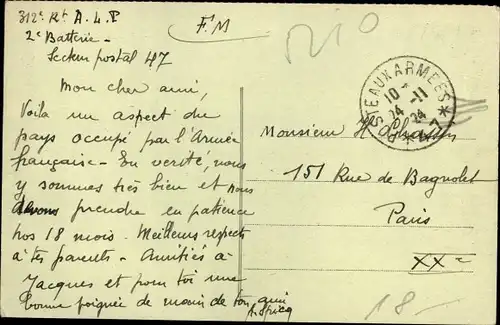 312e Rt A.L.P
F.M
2e Batterie -
Secteur postal 47
Mon cher ami,
Voila un aspect du
pays occupé par l'Armée
française - En verité, nous
y sommes très bien et nous
devons prendre en patience
nos 18 mois. Meilleurs respects
à tes parents - Amitiés à
Jacques et pour toi une
bonne poignée de main de ton ami
POSTE AUX ARMEES
10 -
24 -11
24
* 47 *
Monsieur H.
151 Rue de Bagnolet
Paris
XXe
18 -